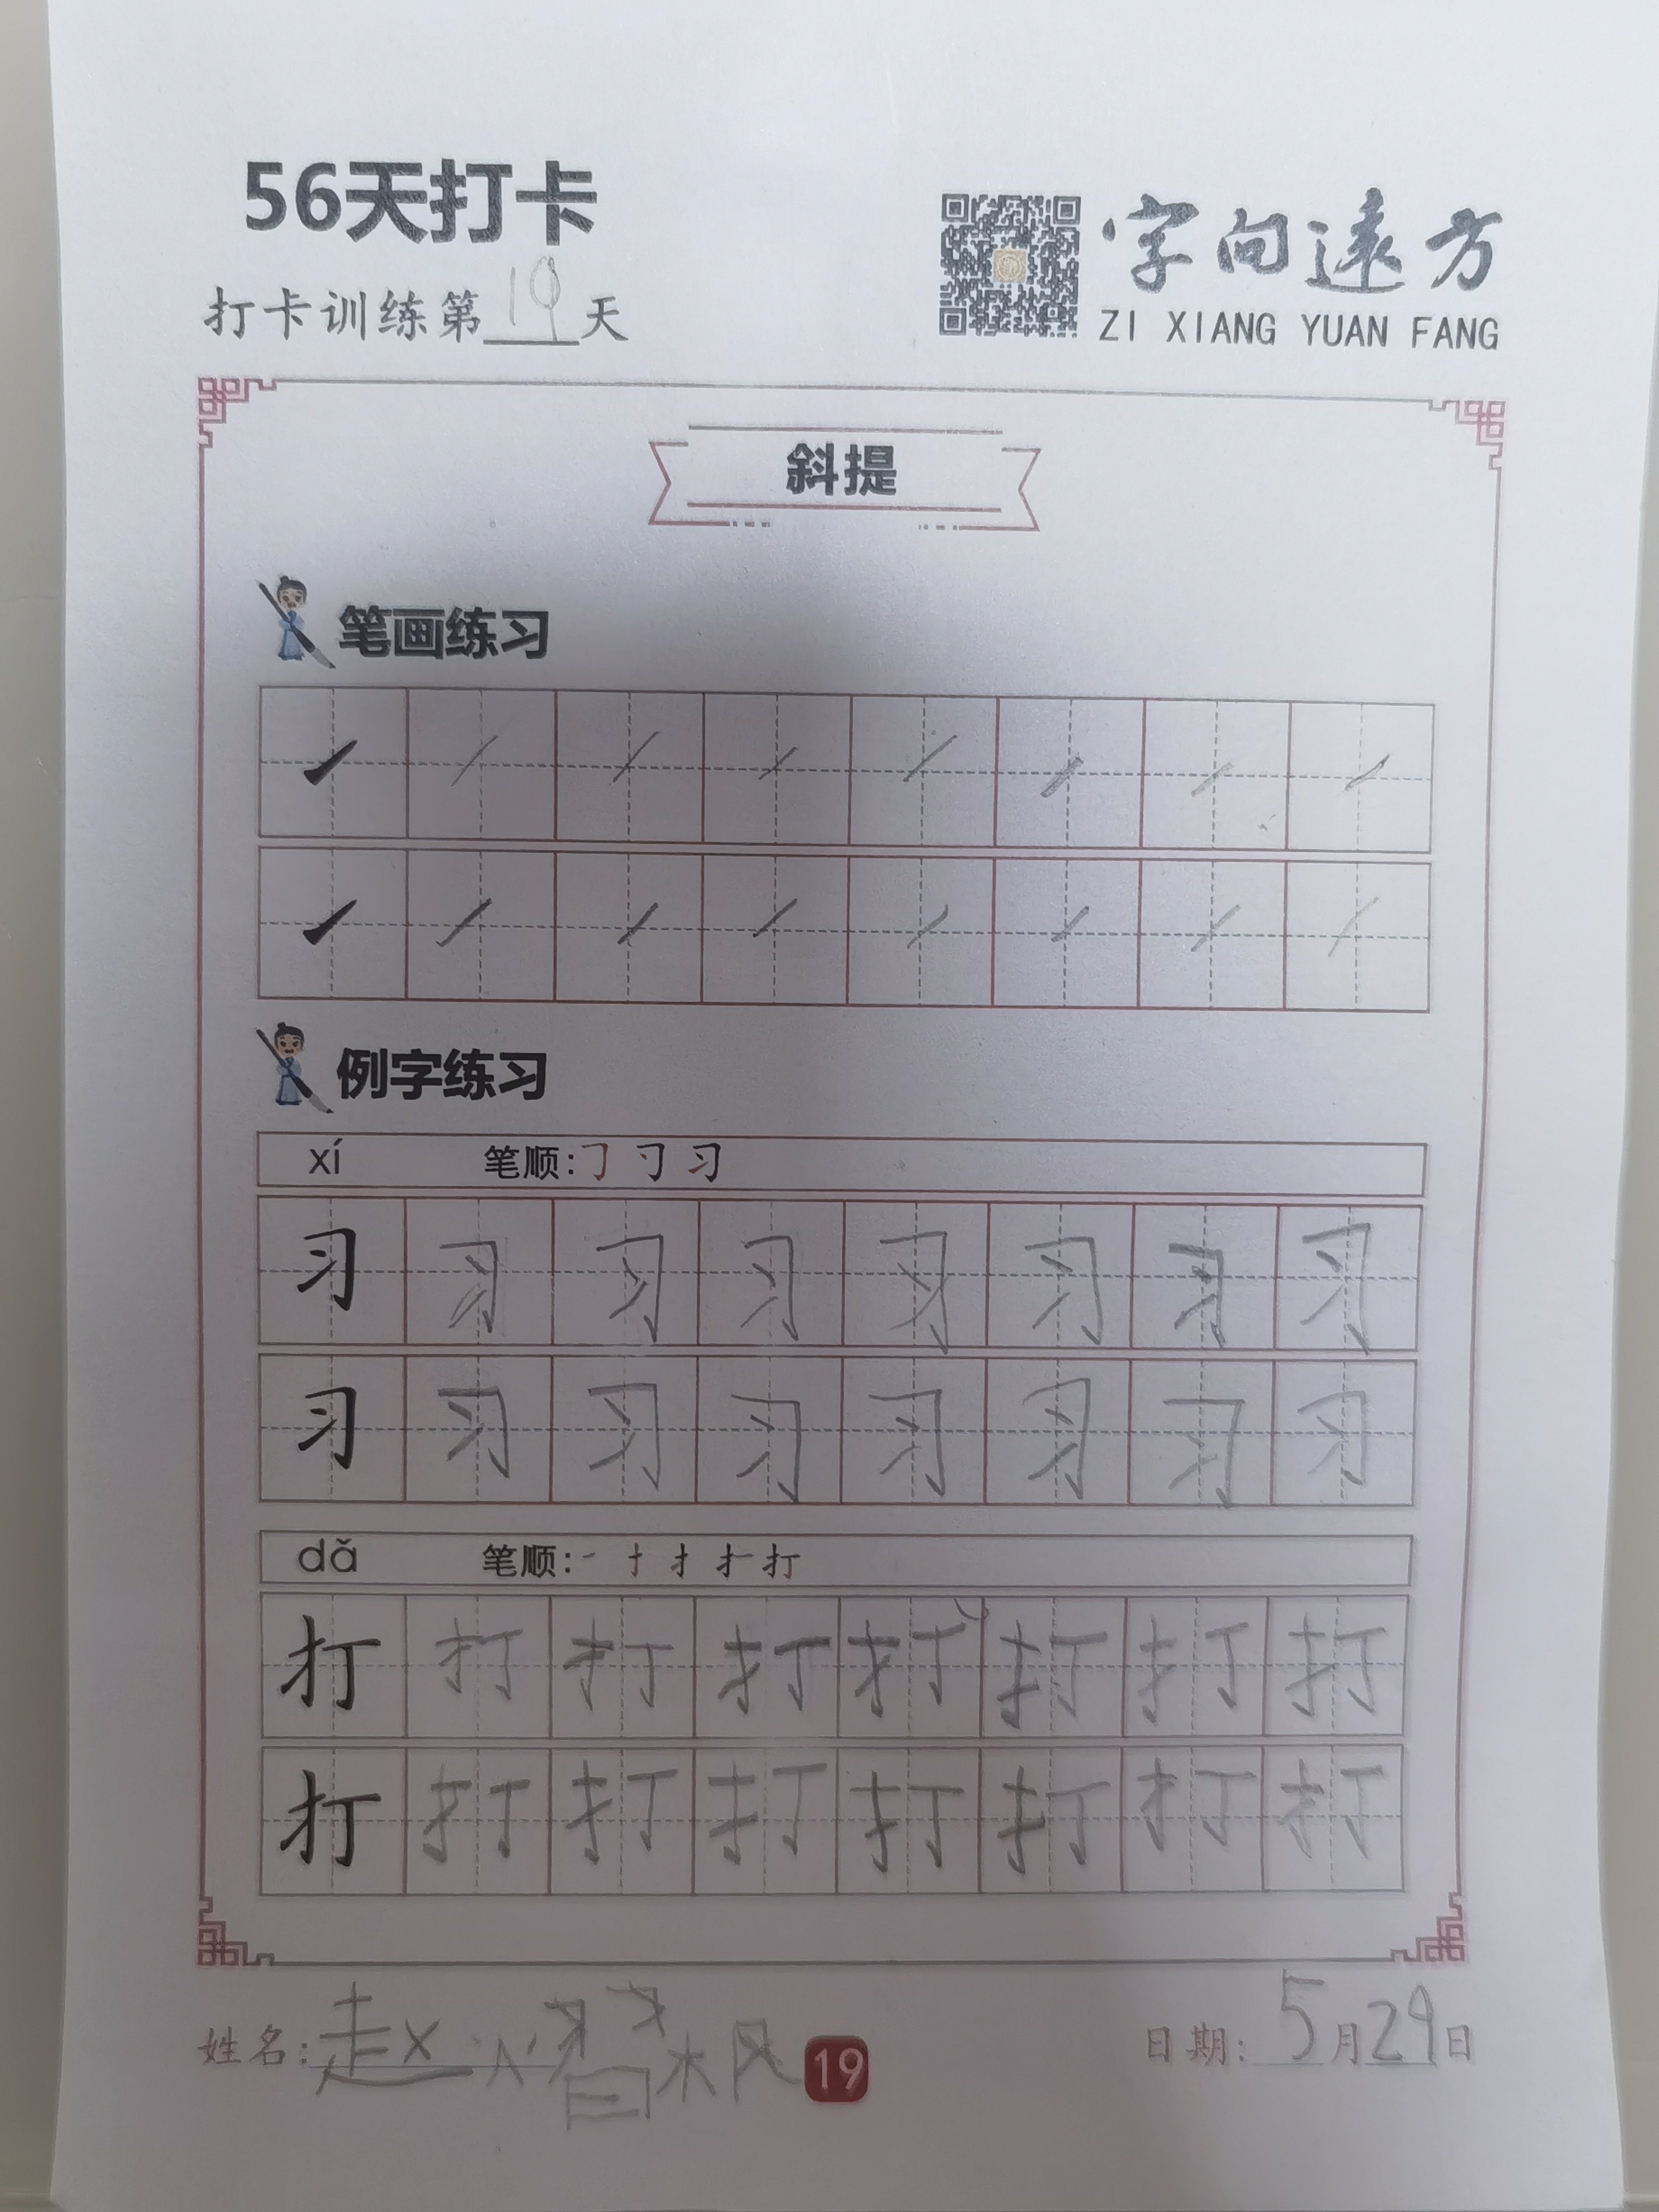 56天打卡
打卡训练第19天
字向遠方
ZI XIANG YUAN FANG
斜提
笔画练习
例字练习
xí 笔顺:
习 习 习 习 习 习 习 习
习 习 习 习 习 习 习 习
dǎ 笔顺:
打 打 打 打 打 打 打 打
打 打 打 打 打 打 打 打
姓名:赵 枫 19 日期:5月29日